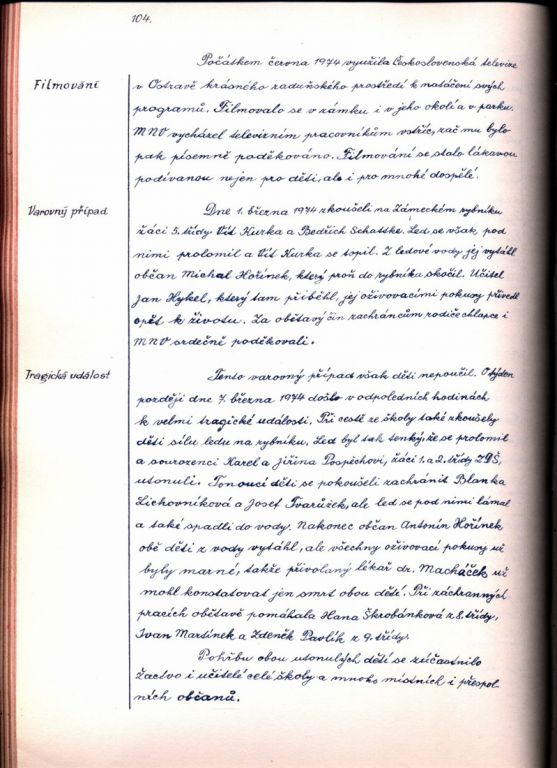 104.
Počátkem června 1974 využila Československá televize
Filmování
v Ostravě krásného raduňského prostředí k natáčení svých
programů. Filmovalo se v zámku i v jeho okolí a v parku.
MNV vycházel televizním pracovníkům vstříc, zač mu bylo
pak písemně poděkováno. Filmování se stalo lákavou
podívanou nejen pro děti, ale i pro mnohé dospělé.
Varovný případ
Dne 1. března 1974 zkoušeli na Zámeckém rybníku
žáci 5. třídy Vít Kurka a Bedřich Schattke. Led se však pod
nimi prolomil a Vít Kurka se topil. Z ledové vody jej vytáhl
občan Michal Hořínek, který proň do rybníka skočil. Učitel
Jan Hykel, který tam přiběhl, jej oživovacími pokusy přivedl
opět k životu. Za obětavý čin zachráncům rodiče chlapce i
MNV srdečně poděkovali.
Tragická událost
Tento varovný případ však děti nepoučil. O týden
později dne 7. března 1974 došlo v odpoledních hodinách
k velmi tragické události. Při cestě ze školy také zkoušely
děti sílu ledu na rybníku. Led byl tak tenký, že se prolomil
a sourozenci Karel a Jiřina Pospěchovi, žáci 1. a 2. třídy ZDŠ,
utonuli. Tonoucí děti se pokoušeli zachránit Blanka
Lichovníková a Josef Tvarůžek, ale led se pod nimi lámal
a také spadli do vody. Nakonec občan Antonín Hořínek
obě děti z vody vytáhl, ale všechny oživovací pokusy už
byly marné, takže přivolaný lékař dr. Macháček už
mohl konstatovat jen smrt obou dětí. Při záchranných
pracích obětavě pomáhala Hana Škrobánková z 8. třídy,
Ivan Martínek a Zdeněk Pavlík z 9. třídy.
Pohřbu obou utonulých dětí se zúčastnilo
žactvo i učitelé celé školy a mnoho místních i přespol-
ních občanů.